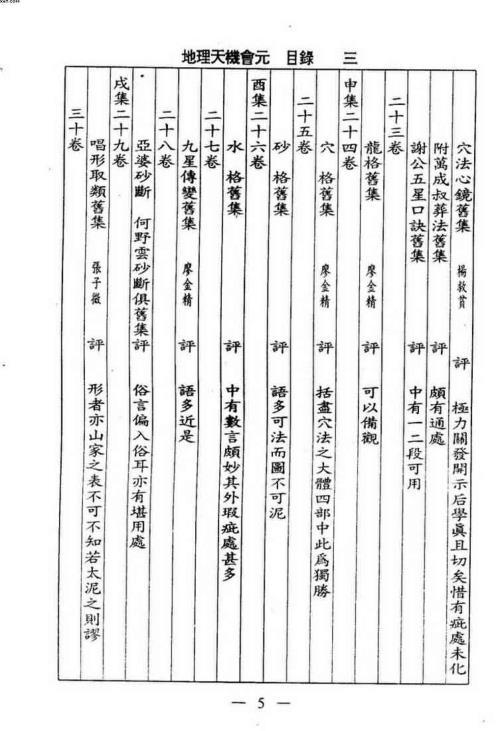 地理天機會元　目錄　三
穴法心鏡舊集　楊救貧　評　極力闢發開示后學眞且切矣惜有疵處未化
附萬成叔葬法舊集　評　頗有通處
謝公五星口訣舊集　評　中有一二段可用
二十三卷
龍格舊集　廖金精　評　可以備觀
申集二十四卷
穴　格舊集　廖金精　評　括盡穴法之大體四部中此爲獨勝
二十五卷
砂　格舊集　評　語多可法而圖不可泥
酉集二十六卷
水　格舊集　評　中有數言頗妙其外瑕疵處甚多
二十七卷
九星傳變舊集　廖金精　評　語多近是
二十八卷
亞婆砂斷　何野雲砂斷俱舊集　評　俗言偏入俗耳亦有堪用處
戌集二十九卷
唱形取類舊集　張子微　評　形者亦山家之表不可不知若太泥之則謬
三十卷
— 5 —